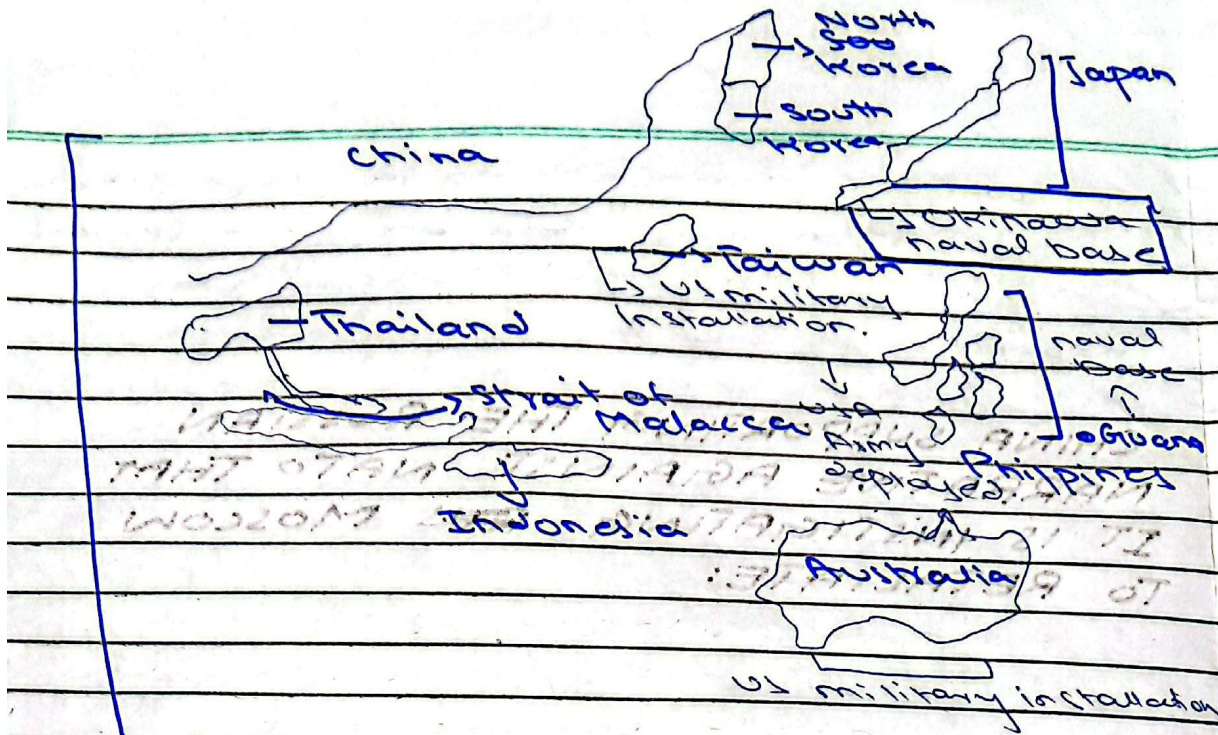 North
Sou
Korea
South
Korea
Japan
China
Okinawa
naval base
Taiwan
US military
Installation.
Thailand
naval
base
Guam
Strait of
Malacca
USA
Army
deployed
Philppines
Indonesia
Australia
US military installation